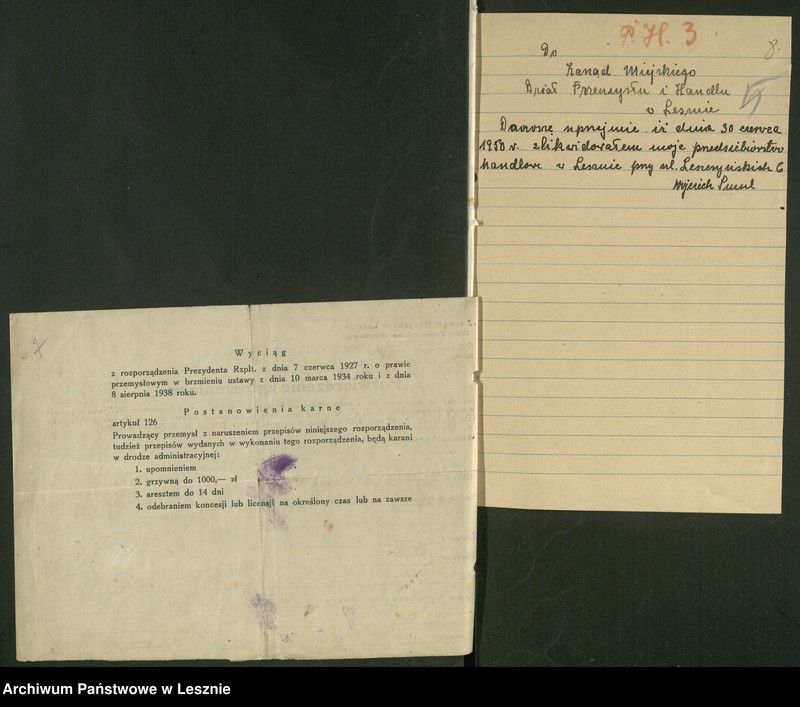 Wyciąg
z rozporządzenia Prezydenta Rzplt. z dnia 7 czerwca 1927 r. o prawie
przemysłowym w brzmieniu ustawy z dnia 10 marca 1934 roku i z dnia
8 sierpnia 1938 roku.
Postanowienia karne
artykuł 126
Prowadzący przemysł z naruszeniem przepisów niniejszego rozporządzenia,
tudzież przepisów wydanych w wykonaniu tego rozporządzenia, będą karani
w drodze administracyjnej:
1. upomnieniem
2. grzywną do 1000,— zł
3. aresztem do 14 dni
4. odebraniem koncesji lub licensji na określony czas lub na zawsze
P. H. 3
8.
Do
Zarząd Miejskiego
Dział Przemysłu i Handlu
w Lesznie
Donoszę uprzejmie iż dnia 30 czerwca
1950 r. zlikwidowałem moje predsiebiorstwo
handlowe w Lesznie przy ul. Leszczyńskich 6
Wojciech
Archiwum Państwowe w Lesznie